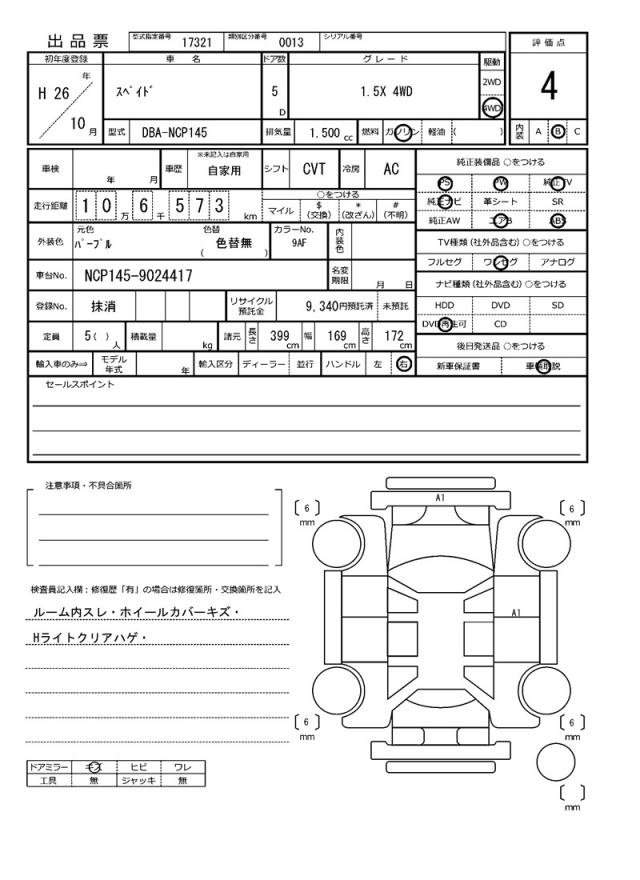 出品票 型式指定番号 17321 類別区分番号 0013 シリアル番号
初年度登録 車名 ドア数 グレード 駆動 評価点
H 26 年 10 月 ｽﾍﾟｲﾄﾞ 5 D 1.5X 4WD 2WD 4WD 4
型式 DBA-NCP145 排気量 1.500 cc 燃料 ガソリン 軽油 ( ) 内装 A B C
車検 年 月 車歴 ※未記入は自家用 自家用 シフト CVT 冷房 AC 純正装備品 ○をつける
PS PW 純正TV
走行距離 10 万 6 千 573 km ○をつける マイル $ (交換) * (改ざん) # (不明) 純正ナビ 革シート SR
純正AW エアB ABS
外装色 元色 ﾊﾟｰﾌﾟﾙ 色替 ( 色替無 ) カラーNo. 9AF 内装色 TV種類 (社外品含む) ○をつける
フルセグ ワンセグ アナログ
車台No. NCP145-9024417 名変期限 月 日 ナビ種類 (社外品含む) ○をつける
登録No. 抹消 リサイクル預託金 9,340円預託済 未預託 HDD DVD SD
DVD再生可 CD
定員 5( ) 人 積載量 kg 諸元 長さ 399 cm 幅 169 cm 高さ 172 cm 後日発送品 ○をつける
輸入車のみ⇒ モデル年式 年 輸入区分 ディーラー 並行 ハンドル 左 右 新車保証書 車輌取説
セールスポイント
注意事項・不具合箇所
A1
6 mm 6 mm
検査員記入欄：修復歴「有」の場合は修復箇所・交換箇所を記入
ルーム内スレ・ホイールカバーキズ・
A1
Hライトクリアハゲ・
6 mm 6 mm
ドアミラー キズ ヒビ ワレ
工具 無 ジャッキ 無
mm